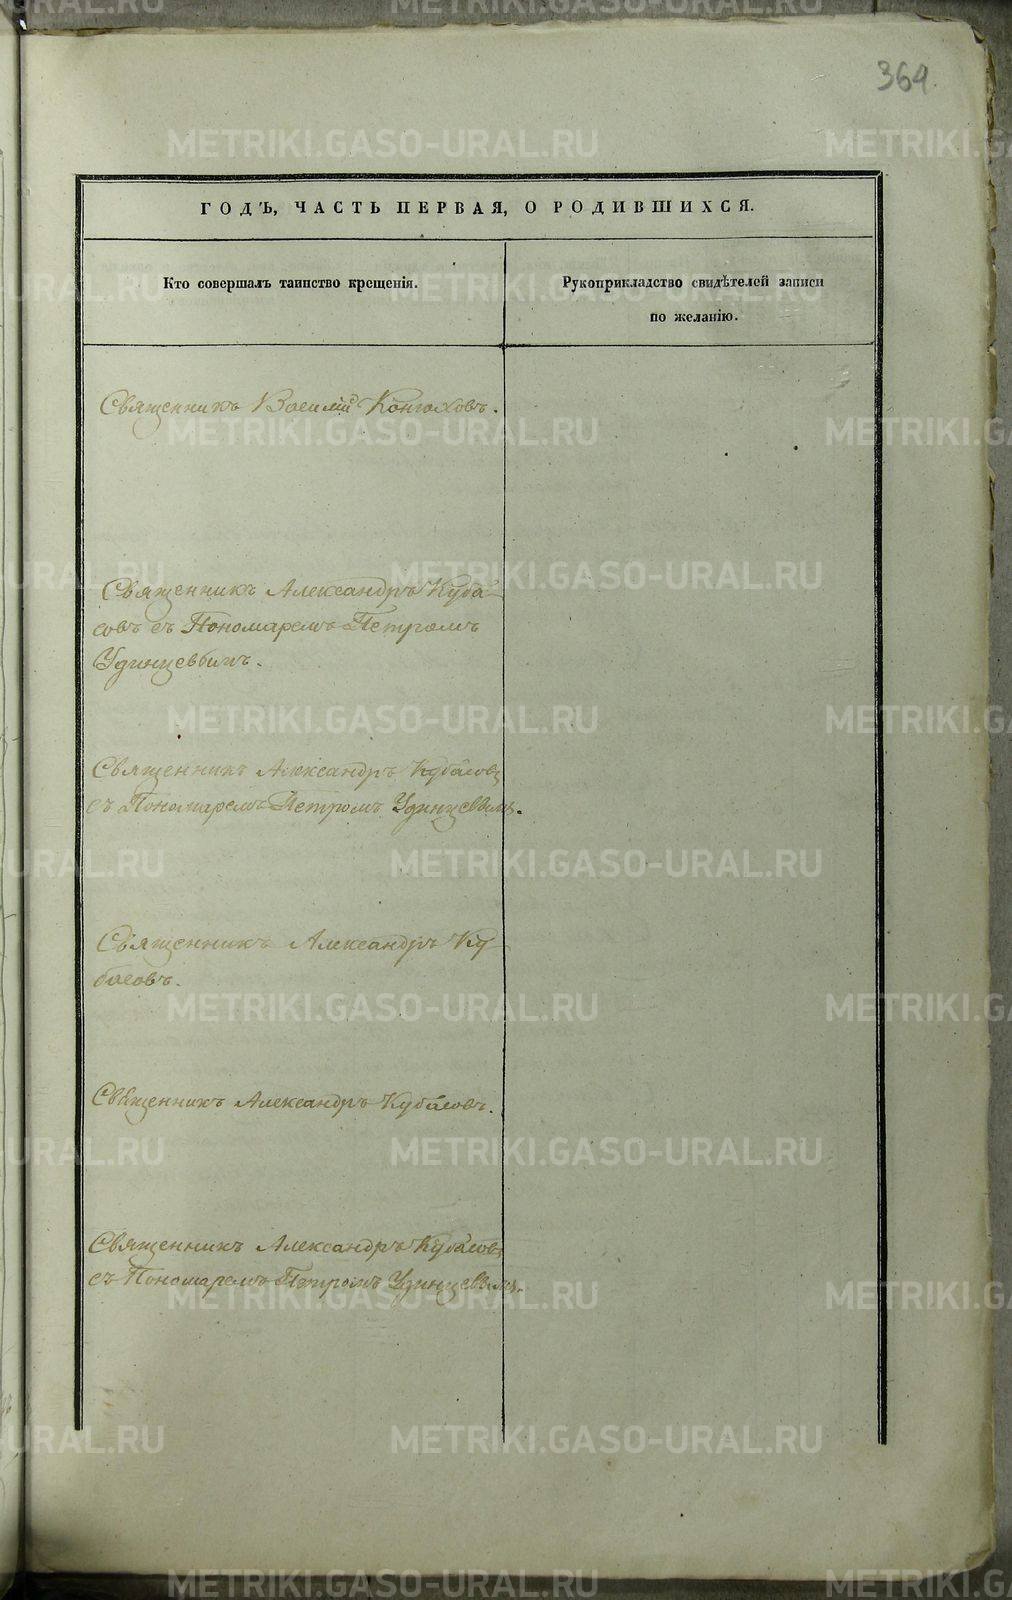 364.
ГОДЪ, ЧАСТЬ ПЕРВАЯ, О РОДИВШИХСЯ.
Кто совершалъ таинство крещенія.
Рукоприкладство свидѣтелей записи
по желанію.
Священникъ Василій Конюховъ.
Священникъ Александръ Куба-
совъ съ Пономаремъ Петромъ
Удинцевымъ.
Священникъ Александръ Кубасовъ
съ Пономаремъ Петромъ Удинцевымъ.
Священникъ Александръ Ку-
басовъ.
Священникъ Александръ Кубасовъ.
Священникъ Александръ Кубасовъ
съ Пономаремъ Петромъ Удинцевымъ.
METRIKI.GASO-URAL.RU